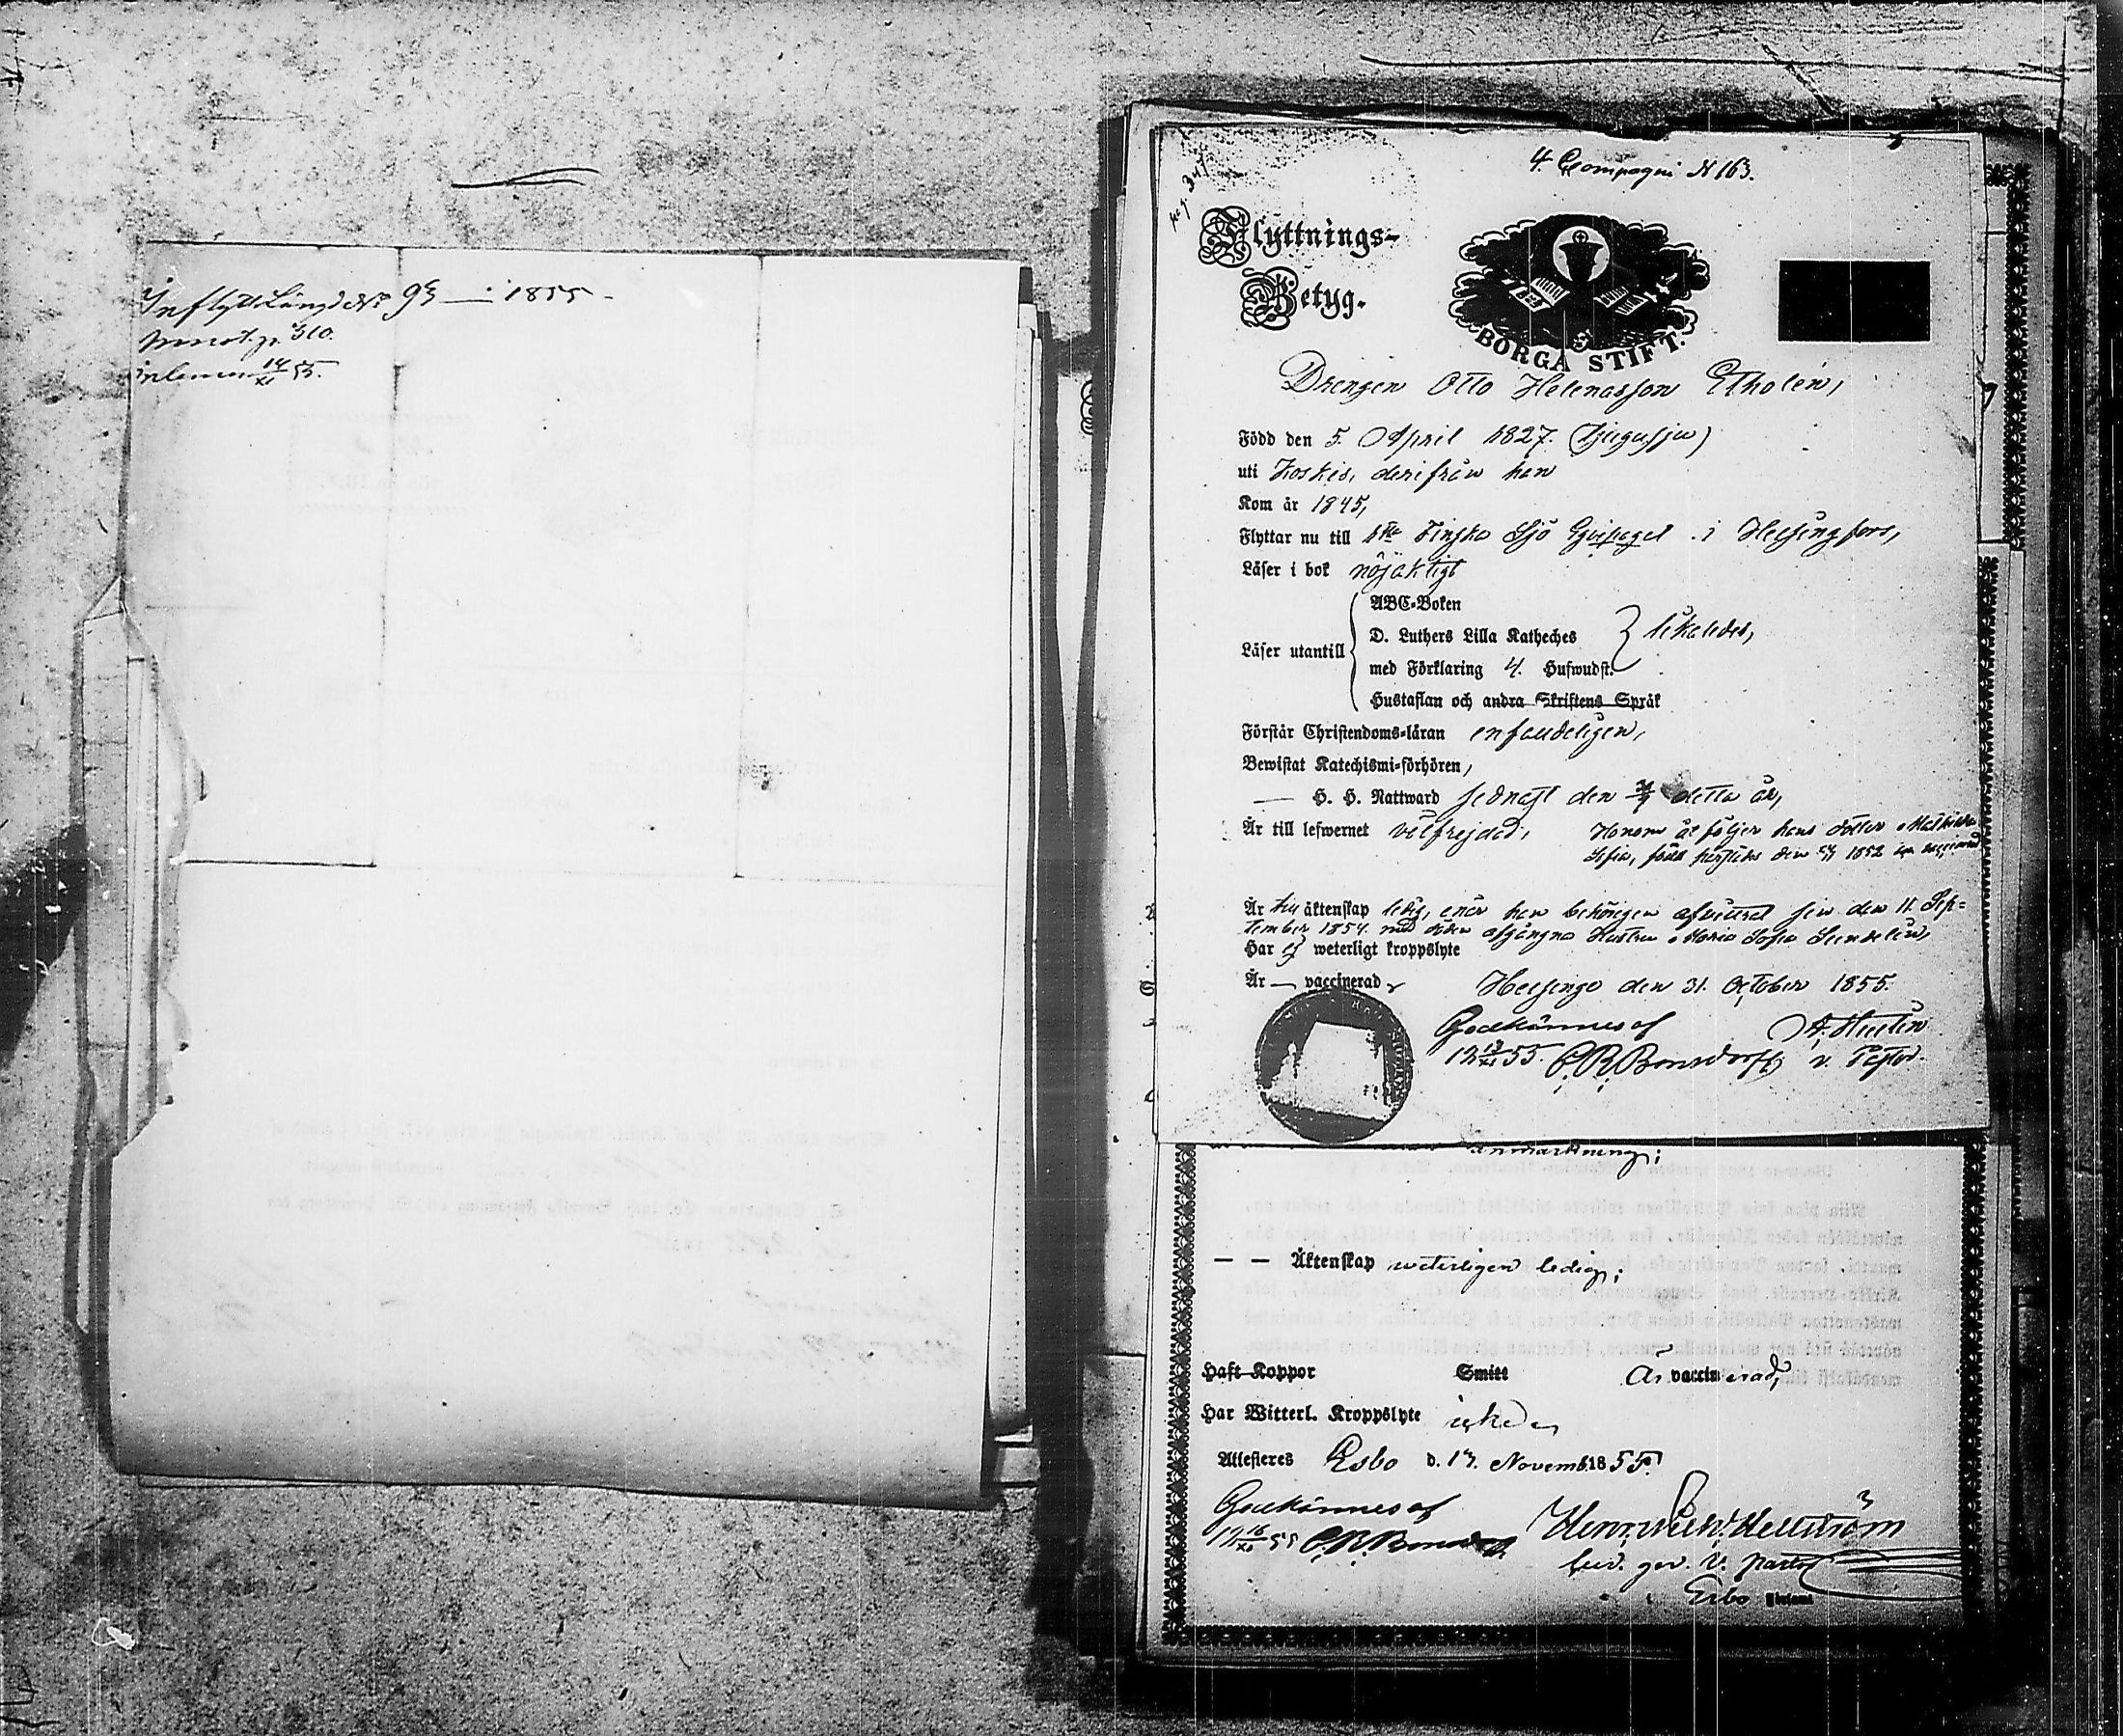 Inflyttn Längd No 93 — 1855 -
Annot. p. 310.
inlemn 14/XI 55.
4. Compagni N 163.
pag. 341
Flyttnings-
Betyg.
BORGÅ STIFT.
Drengen Otto Helenasson Etholén,
Född den 5. April 1827. (tjugusju)
uti Koskis, derifrån han
Kom år 1845,
Flyttar nu till 1sta Finska Sjö Equipaget i Helsingfors,
Läser i bok nöjaktigt
Läser utantill
ABC-Boken
D. Luthers Lilla Katheches
med Förklaring 4. Hufwudst.
likaledes,
Hustaflan och andra Skriftens Språk
Förstår Christendoms-läran enfaldeligen,
Bewistat Katechismi-förhören,
— H. H. Nattward sednast den detta år,
Är till lefwernet välfrejdad,
Honom åtföljer hans dotter Mathilda
Sofia, född den 1852
Är till äktenskap ledig, enär han behörigen afvittrat sin den 11. Sep-
tember 1854 med döden afgångna Hustru Maria Sofia Lindelöw,
Har ej weterligt kroppslyte
Är — vaccinerad
Helsinge den 31. October 1855.
Godkännes af
A. Hulén
12 13/XI 55. C. R. Bonsdorff
v. Pastor.
Anmärkning;
— — Äktenskap weterligen ledig;
Haft Koppor Smitt Är vaccinerad,
Har Witterl. Kroppslyte icke
Attesteres Esbo d. 13. Novemb. 1855.
Godkännes af
12 16/XI 55 C. R. Bonsdorff
Henr. Wilh. Hellström
v. pastor
Esbo